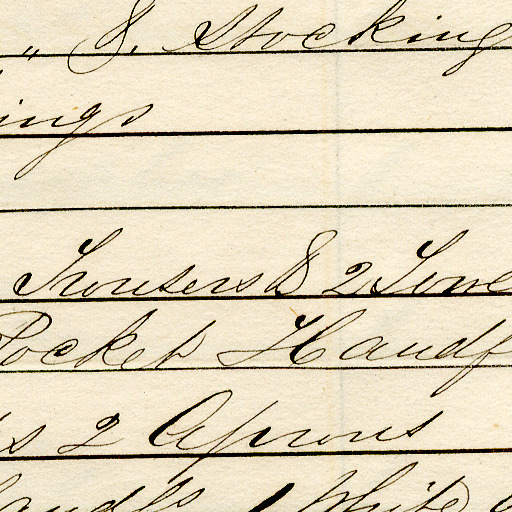 " 8. Stocking
ings
Trousers & 2 Towe
Pocket Handf
s 2 Aprons
andfs 1 White